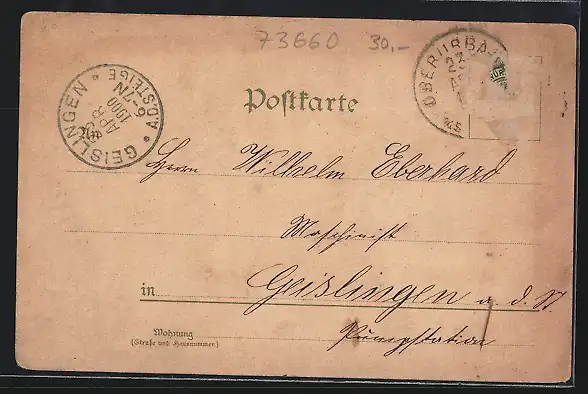 73660 30,-
OBERURBA
23
GEISLINGEN * A.D.STEIGE *
APR
1900
6-7N
Postkarte
Herrn Wilhelm Eberhard
Maschinist
in Geislingen a. d. St.
Wohnung
(Straße und Hausnummer)
Pumpstation